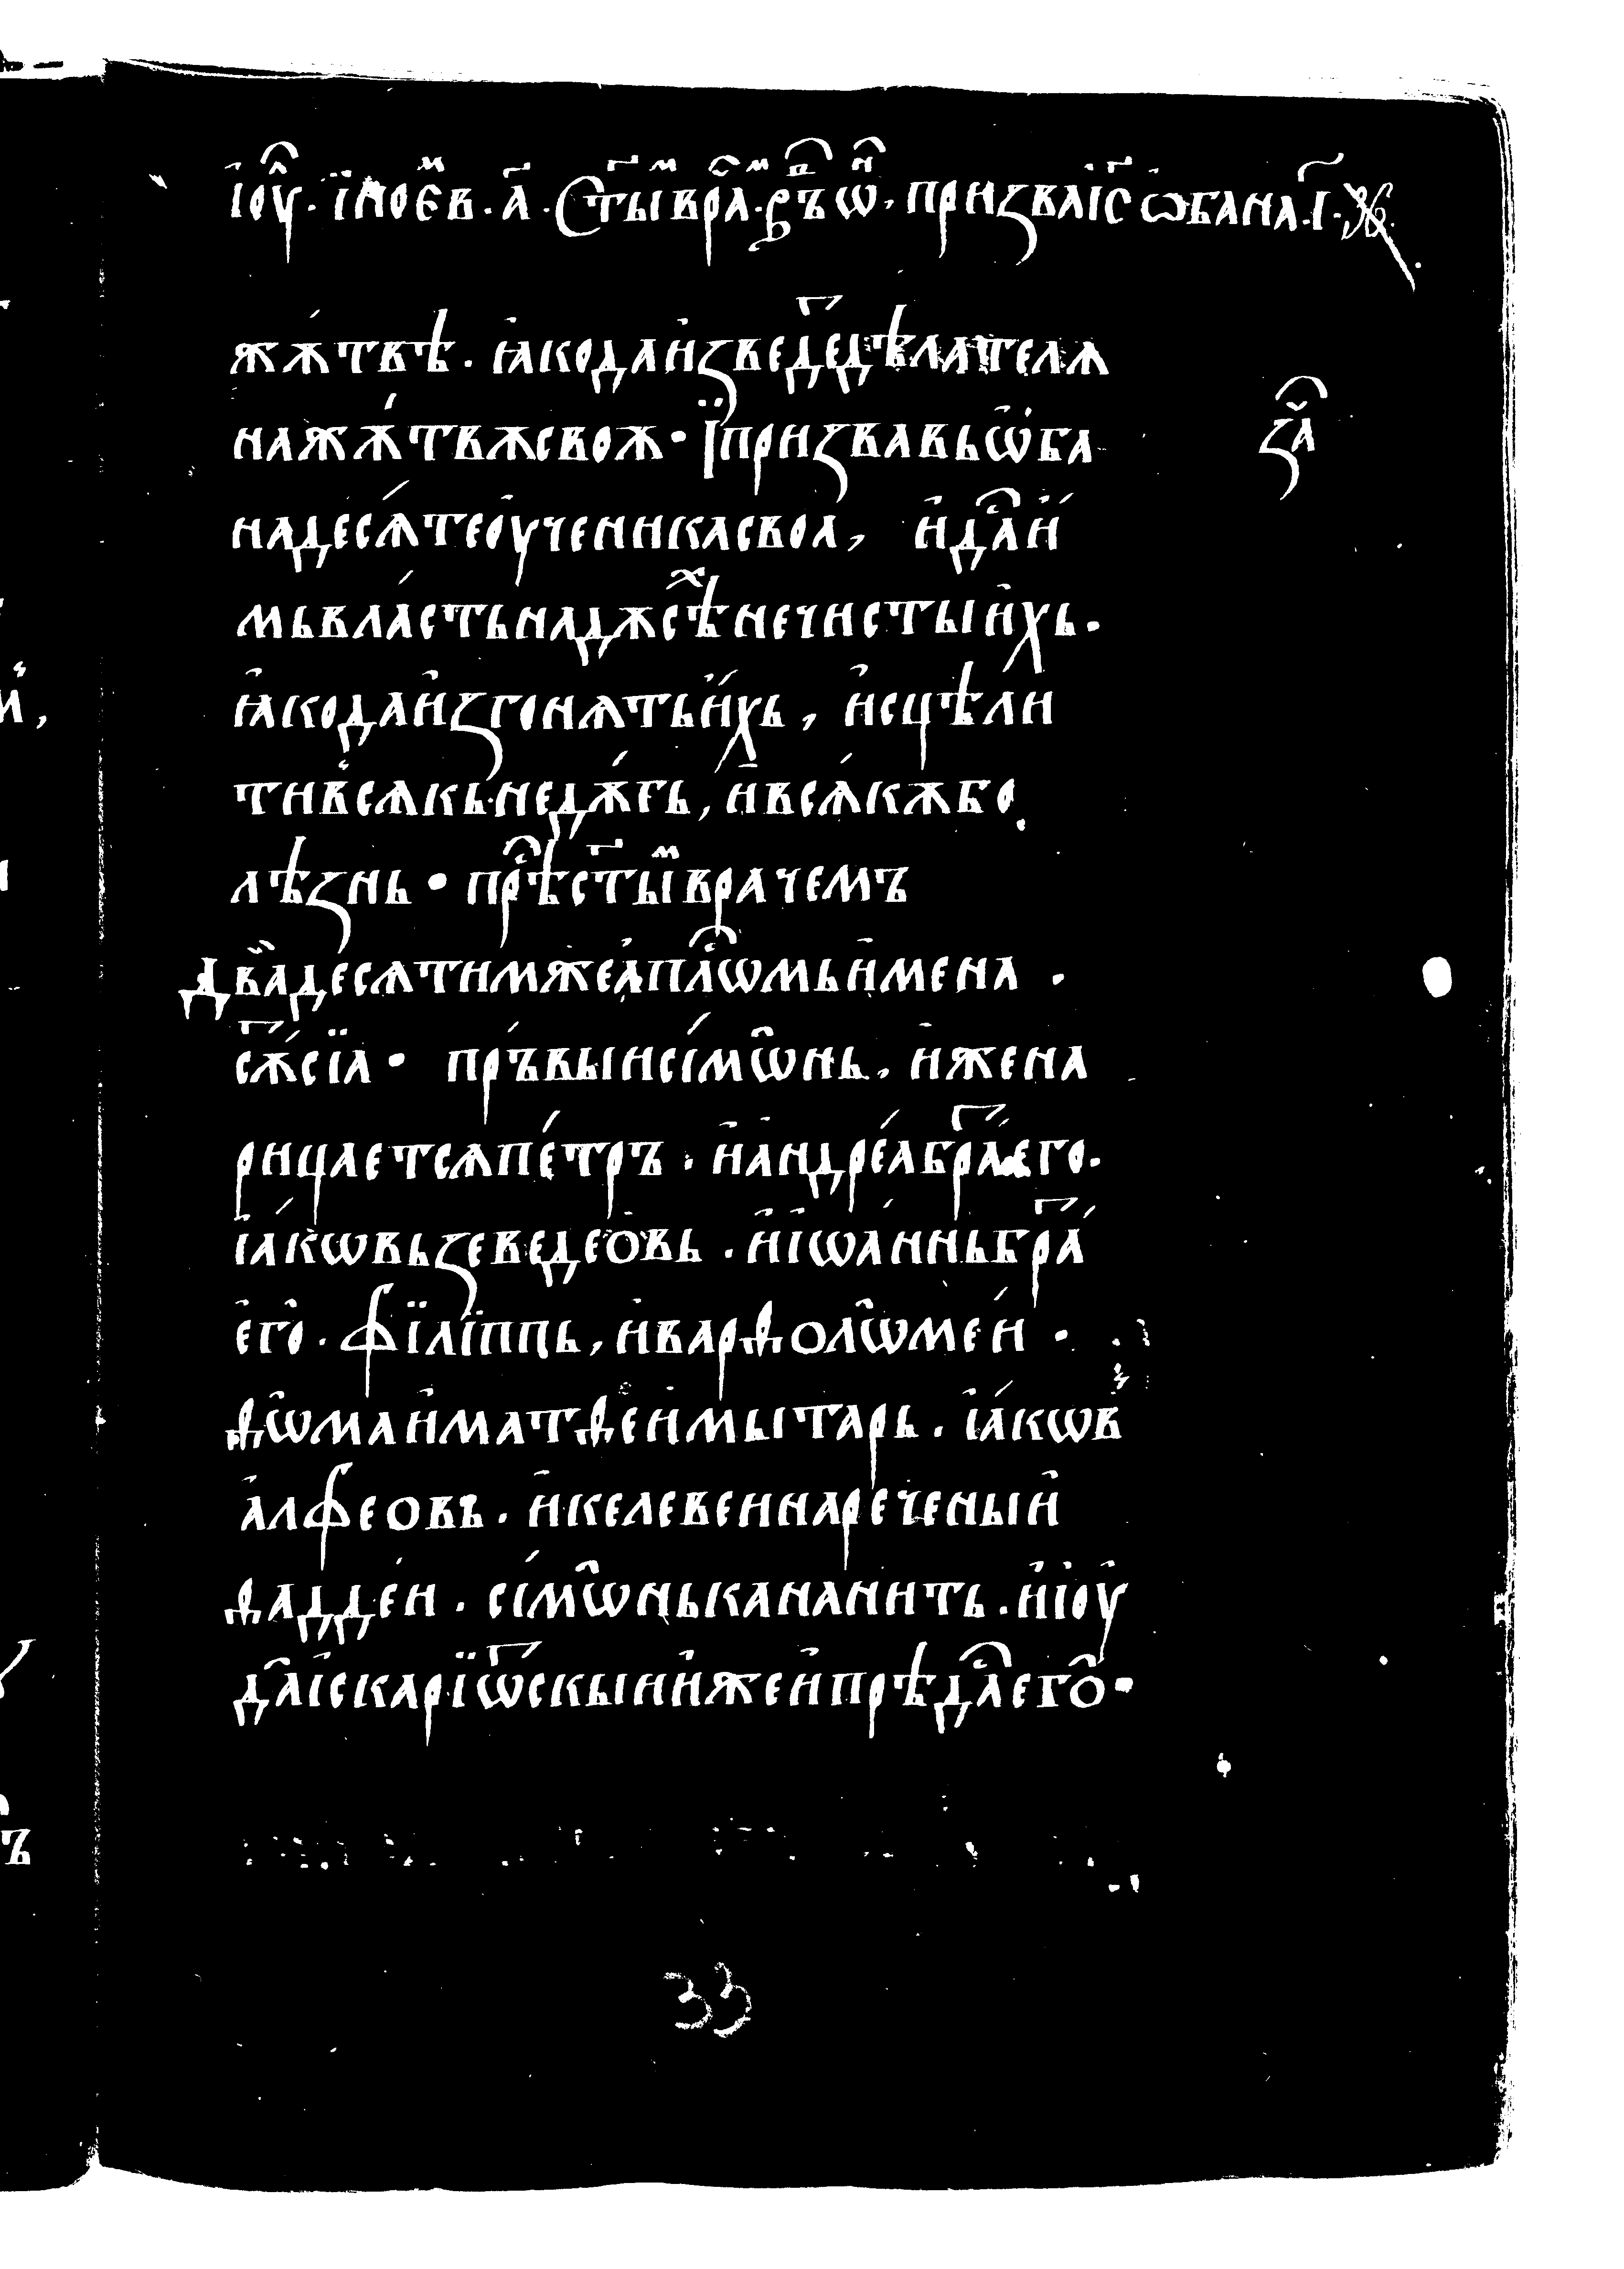 і҆оуⷩ҇ · їноеⷨв · а҃ · Ст҃ыⷨврⷱ҇аⷨ · въⷪ҇ ѡⷩ҇, призваіс҃ ѡбана·і҃·
жѫ́твѣ · ꙗ҆кодаи҆зведеⷮдѣлателѧ
нажѫ́твѫсвоѫ · Їпризвавьѡ҆ба
ꙁаⷱ҇
надесѧ́теоу҆ченикасвоа, и҆даⷭ҇и҆
мьвла́стьнадⷯѫсѣнечистыи҆хь ·
ꙗ҆кодаи҆згонѧтьи҆́хь, и҆сцѣли
тивсѧкь·недѫ́гь, и҆всѧ́кѫбо
лѣзнь · прⷣѣст҃ыⷨврачемъ
Двⷩ҇адесѧтимжеа҆плⷭ҇ѡмьи҆мена ·
сѫ́ⷮсїа · пръ́выисі́мѡ̑нь, и҆жена
рицаетсѧпе́тръ · и҆а҆ндре́абраⷮего ·
і҆а́кѡвьзеведеѻ҆вь · и҆і҆ѡа́нньбраⷮ
е҆го̑ · фїлїппь, и҆варѳолѡ̑меи ·
ѳѡ̑маи҆матѳеи҆мытарь · і҆а́кѡв
а҆лфеовъ · и҆келевеинареченыи҆
ѳадде́и · сі́мѡ̑нькананить · и҆і҆оу҆
даⷭ҇і҆скарїѡⷮскыии҆жеи҆прѣдаⷭ҇его̑ ·
33